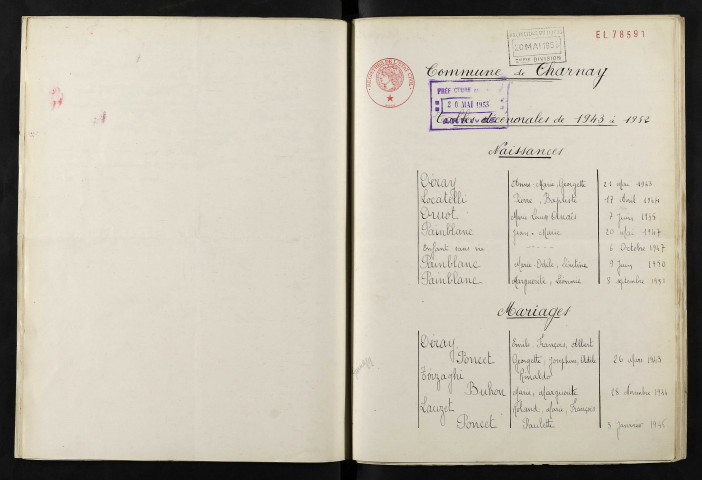 EL 78591
20 MAI 1953
2EME DIVISION
REGISTRES DE L'ETAT CIVIL
Commune de Charnay
PREFECTURE
20 MAI 1953
Tables décennales de 1943 à 1952
Naissances
Déray Anne-Marie, Georgette 21 Mai 1943
Locatelli Pierre, Baptiste 17 Avril 1944
Druot Marie 7 Juin 1945
Painblanc Jean-Marie 20 Mai 1947
Enfant sans vie 6 Octobre 1947
Painblanc Marie-Odile, 9 Juin 1950
Painblanc Marguerite, Léonnie 8 septembre 1951
Mariages
Déray Emile, François, Albert
Poncet Georgette, Joséphine, Adèle 26 Mars 1943
Terzaghi Rinaldo
Buhon Marie, Marguerite 28 Novembre 1944
Lauzet Roland, Marie, François
Poncet Paulette 3 Janvier 1945